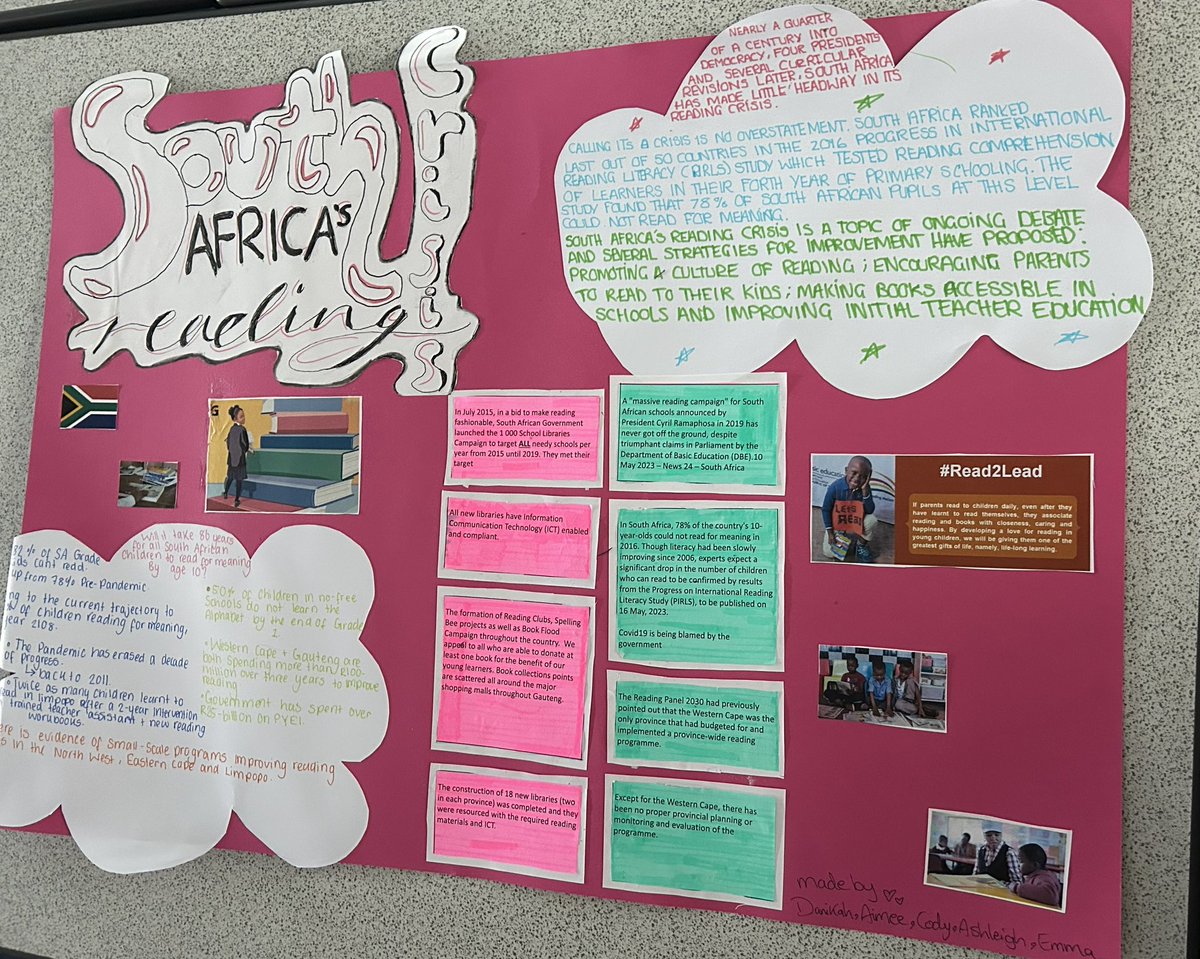 South
AFRICA'S
reading
Crisis
NEARLY A QUARTER
OF A CENTURY INTO
DEMOCRACY, FOUR PRESIDENTS
AND SEVERAL CURRICULAR
REVISIONS LATER, SOUTH AFRICA
HAS MADE LITTLE HEADWAY IN ITS
READING CRISIS.
CALLING ITS A CRISIS IS NO OVERSTATEMENT. SOUTH AFRICA RANKED
LAST OUT OF 50 COUNTRIES IN THE 2016 PROGRESS IN INTERNATIONAL
READING LITERACY (PIRLS) STUDY WHICH TESTED READING COMPREHENSION
OF LEARNERS IN THEIR FORTH YEAR OF PRIMARY SCHOOLING. THE
STUDY FOUND THAT 78% OF SOUTH AFRICAN PUPILS AT THIS LEVEL
COULD NOT READ FOR MEANING.
SOUTH AFRICA'S READING CRISIS IS A TOPIC OF ONGOING DEBATE
AND SEVERAL STRATEGIES FOR IMPROVEMENT HAVE PROPOSED:
PROMOTING A CULTURE OF READING; ENCOURAGING PARENTS
TO READ TO THEIR KIDS; MAKING BOOKS ACCESSIBLE IN
SCHOOLS AND IMPROVING INITIAL TEACHER EDUCATION
In July 2015, in a bid to make reading
fashionable, South African Government
launched the 1 000 School Libraries
Campaign to target ALL needy schools per
year from 2015 until 2019. They met their
target
All new libraries have Information
Communication Technology (ICT) enabled
and compliant.
The formation of Reading Clubs, Spelling
Bee projects as well as Book Flood
Campaign throughout the country. We
appeal to all who are able to donate at
least one book for the benefit of our
young learners. Book collections points
are scattered all around the major
shopping malls throughout Gauteng.
The construction of 18 new libraries (two
in each province) was completed and they
were resourced with the required reading
materials and ICT.
A "massive reading campaign" for South
African schools announced by
President Cyril Ramaphosa in 2019 has
never got off the ground, despite
triumphant claims in Parliament by the
Department of Basic Education (DBE).10
May 2023 – News 24 – South Africa
In South Africa, 78% of the country's 10-
year-olds could not read for meaning in
2016. Though literacy had been slowly
improving since 2006, experts expect a
significant drop in the number of children
who can read to be confirmed by results
from the Progress on International Reading
Literacy Study (PIRLS), to be published on
16 May, 2023.
Covid19 is being blamed by the
government
The Reading Panel 2030 had previously
pointed out that the Western Cape was the
only province that had budgeted for and
implemented a province-wide reading
programme.
Except for the Western Cape, there has
been no proper provincial planning or
monitoring and evaluation of the
programme.
G
basic education
LETS
Read
#Read2Lead
If parents read to children daily, even after they
have learnt to read themselves, they associate
reading and books with closeness, caring and
happiness. By developing a love for reading in
young children, we will be giving them one of the
greatest gifts of life, namely, life-long learning.
82% of SA Grade
can't read.
up from 78% Pre-Pandemic
to the current trajectory to
of children reading for meaning,
year 2108.
The Pandemic has erased a decade
of progress.
↳ back to 2011.
• Twice as many children learnt to
read in limpopo after a 2-year intervention
trained teacher assistant + new reading
workbooks.
Will it take 86 years
for all South African
children to read for meaning
By age 10?
• 50% of children in no-free
schools do not learn the
Alphabet by the end of Grade
1
• Western Cape + Gauteng are
both spending more than R100-
million over three years to improve
reading
• Government has spent over
R25-billion on PYEI.
is evidence of small-scale programs improving reading
in the North West, Eastern Cape and Limpopo.
made by ♡♡
Danikah, Aimee, Cody, Ashleigh, Emma